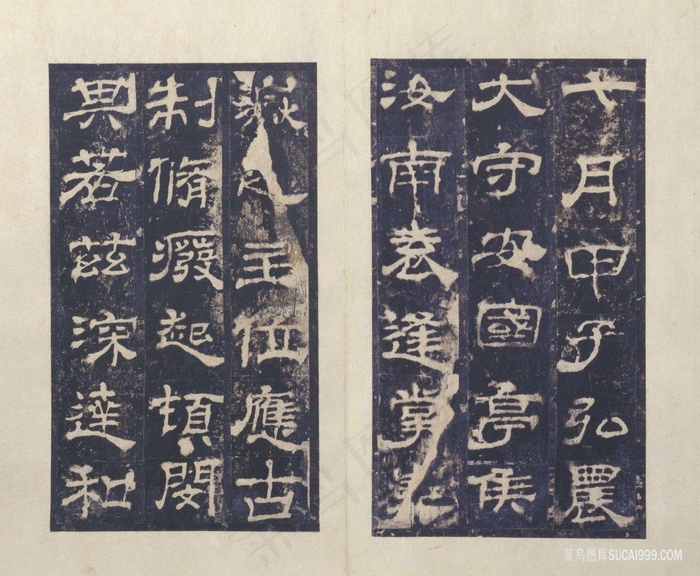 七月甲子弘農
大守安國亭侯
汝南袁逢掌華
嶽之主位應古
制脩癈起頓閔
其若茲深達和
菜鸟图库SUCAI999.COM